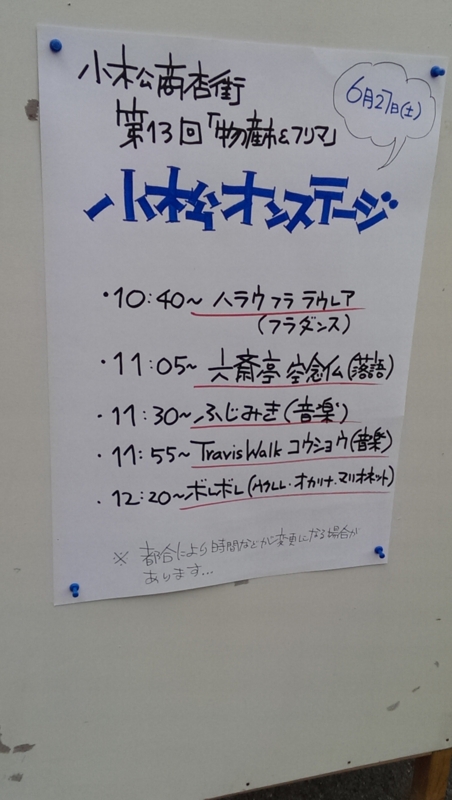 小松商店街
6月27日(土)
第13回「物産市&フリマ」
小松オンステージ
・10:40～ ハラウ フラ ラウレア
(フラダンス)
・11:05～ 六斎亭 空念仏(落語)
・11:30～ ふじみき(音楽)
・11:55～ Travis Walk コウショウ(音楽)
・12:20～ ポレポレ(ウクレレ・オカリナ・マリオネット)
※ 都合により時間などが変更になる場合が
あります...